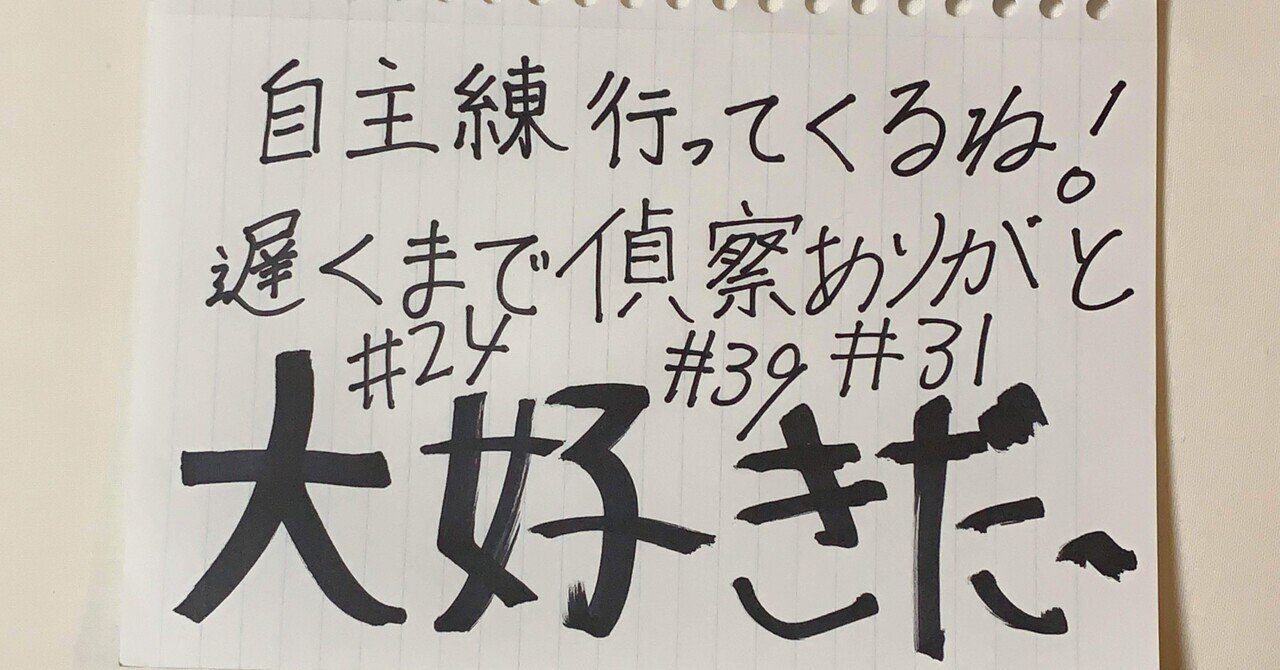 自主練行ってくるね!
遅くまで偵察ありがと
#24 #39 #31
大好きだ、